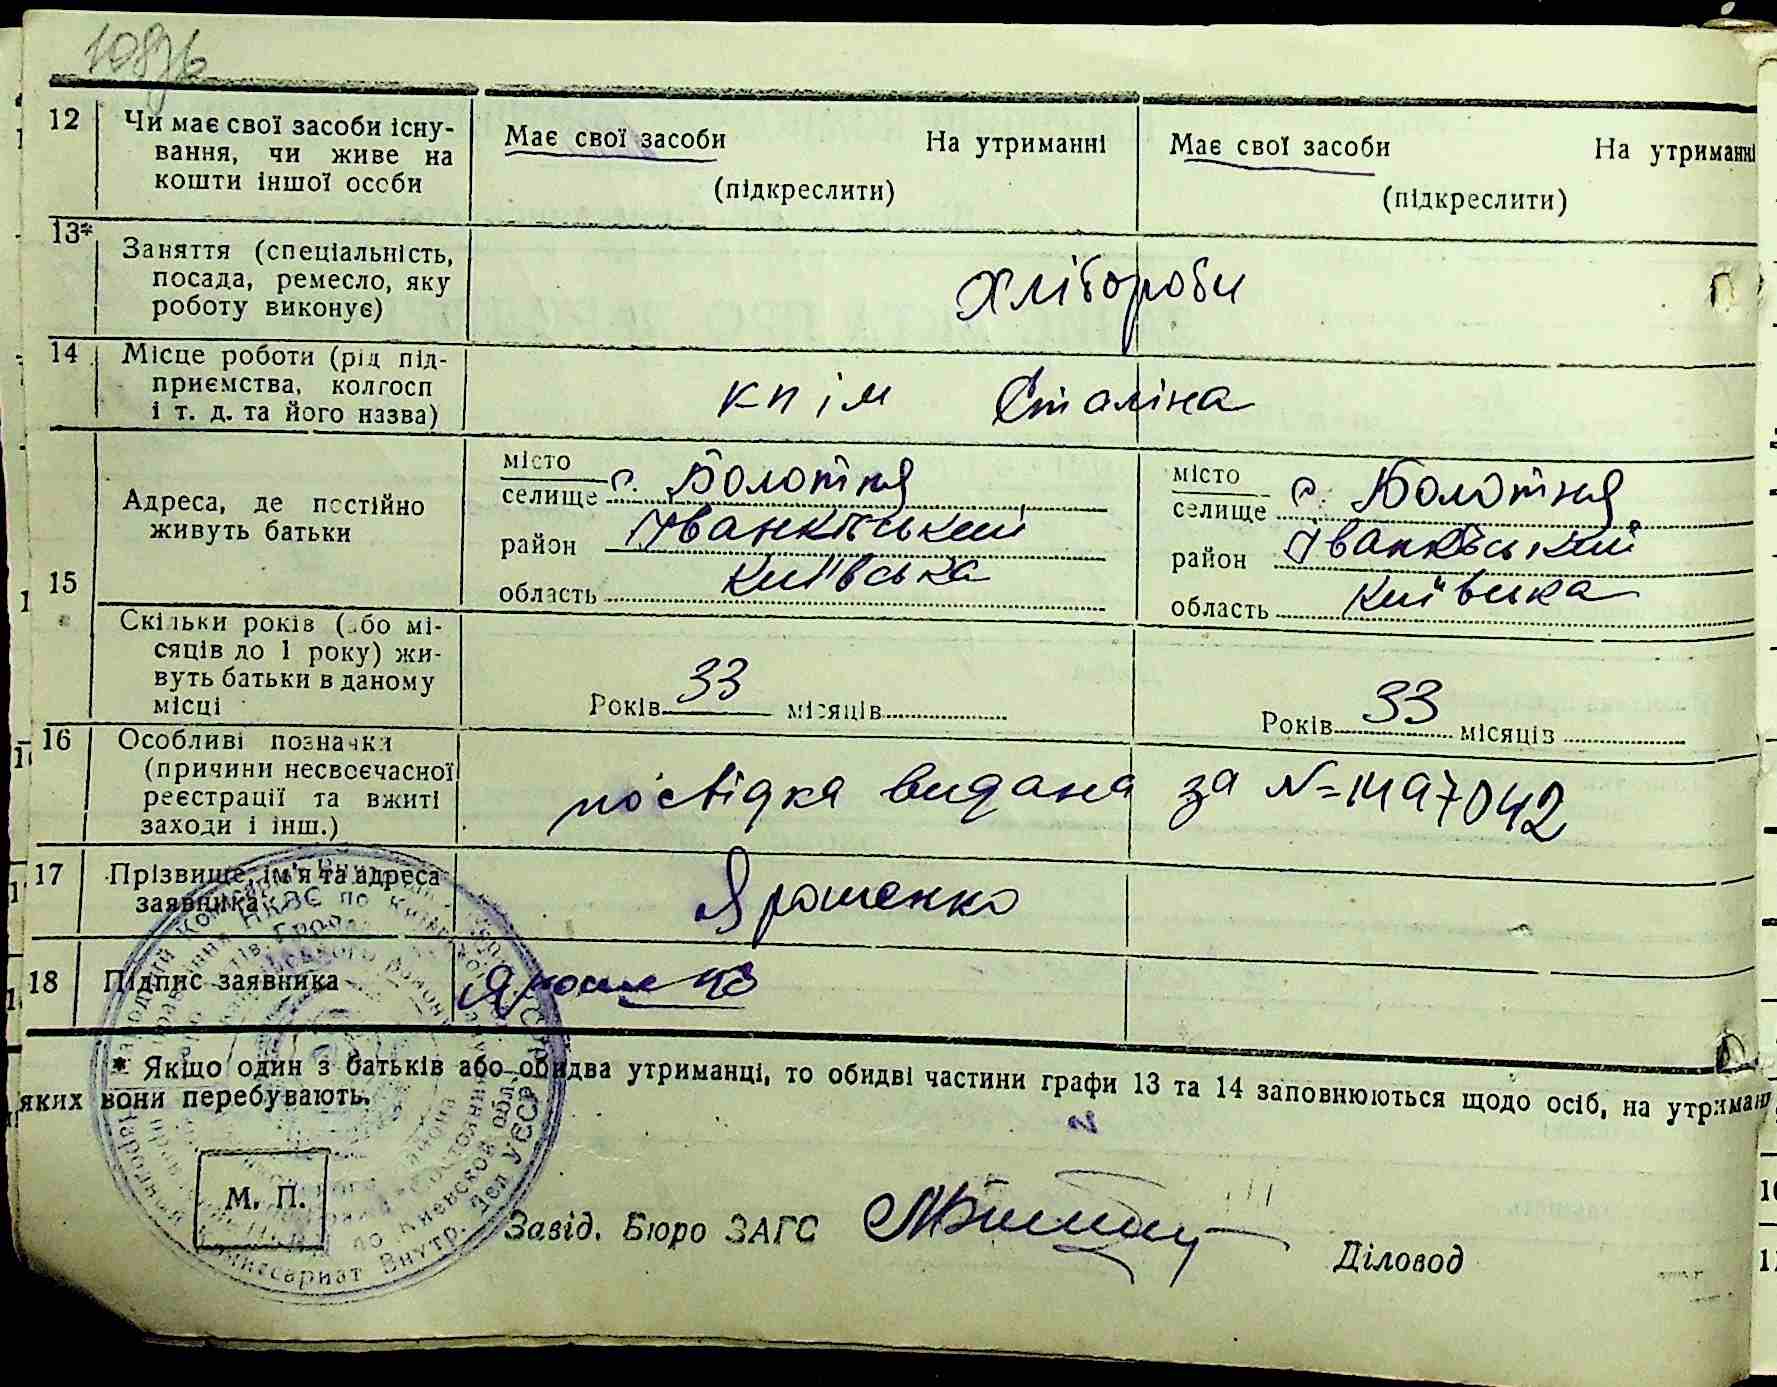 12 Чи має свої засоби існу-
вання, чи живе на
кошти іншої особи
Має свої засоби На утриманні
(підкреслити)
Має свої засоби На утриманні
(підкреслити)
13* Заняття (спеціальність,
посада, ремесло, яку
роботу виконує)
Хлібороби
14 Місце роботи (рід під-
приємства, колгосп
і т. д. та його назва)
кп ім Сталіна
15
Адреса, де постійно
живуть батьки
місто
селище с. Болотня
район Іванківський
область Київська
місто
селище с. Болотня
район Іванківський
область Київська
Скільки років (або мі-
сяців до 1 року) жи-
вуть батьки в даному
місці
Років 33 місяців
Років 33 місяців
16 Особливі позначки
(причини несвоєчасної
реєстрації та вжиті
заходи і інш.)
посвідка видана за №
17 Прізвище, ім'я та адреса
заявника
Ярошенко
18 Підпис заявника
* Якщо один з батьків або обидва утриманці, то обидві частини графи 13 та 14 заповнюються щодо осіб, на утриманні
яких вони перебувають.
М. П.
Завід. Бюро ЗАГС
Діловод